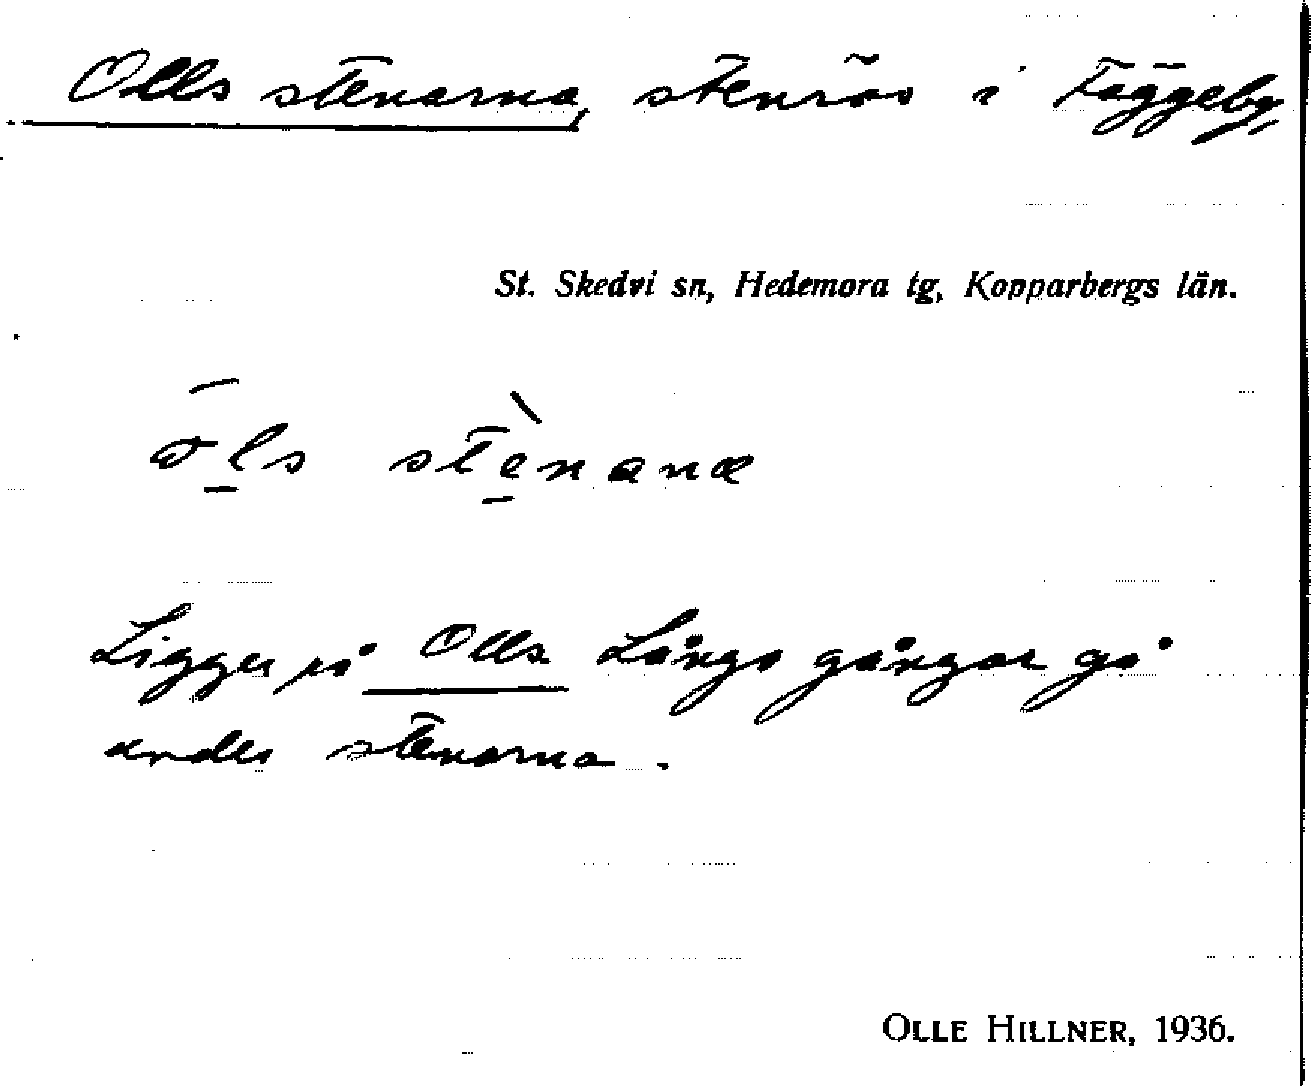 Olls stenarna, stenrös i Täggeby,
St. Skedvi sn, Hedemora tg, Kopparbergs län.
ōls stènana
Ligger på Olls. Långa gångar gå
under stenarna.
OLLE HILLNER, 1936.